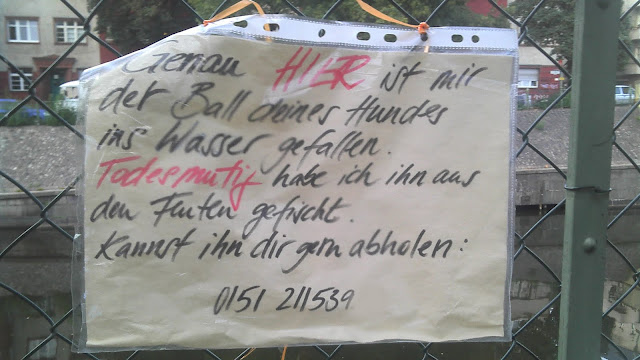 Genau HIER ist mir
der Ball deines Hundes
ins Wasser gefallen.
Todesmutig habe ich ihn aus
den Fluten gefischt.
Kannst ihn dir gern abholen:
0151 211539